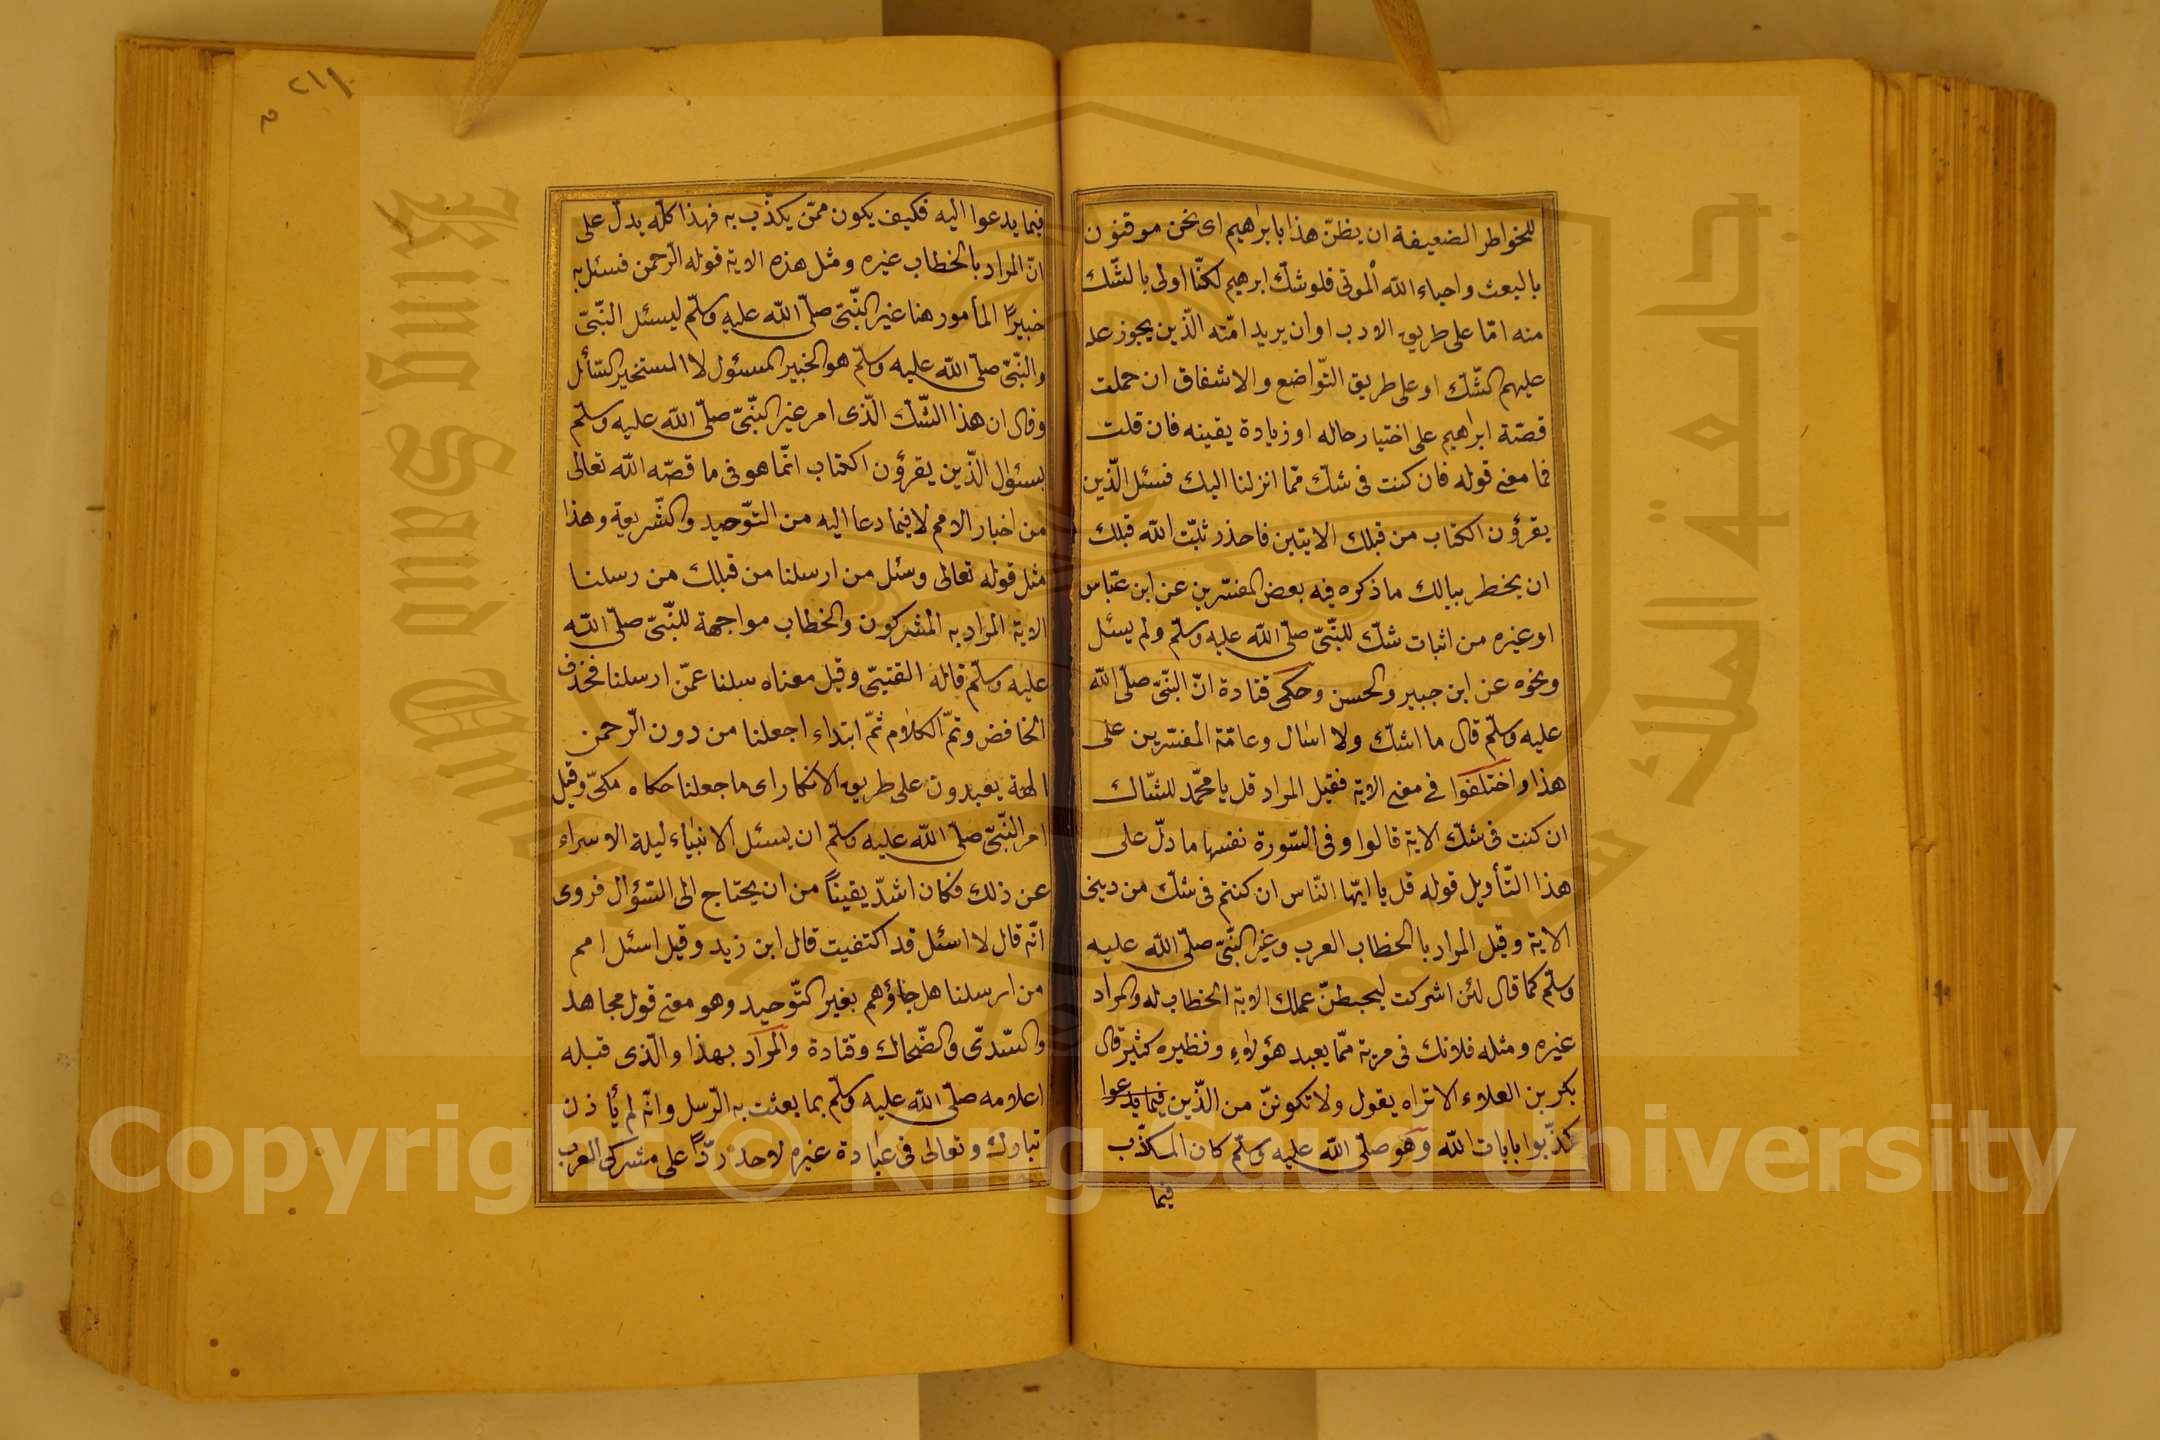 للخواطر الضعيفة ان يظنّ هذا بابراهيم اى نحن موقنون
بالبعث واحياء الله الموتى فلو شكّ ابرهيم لكنّا اولى بالشّك
منه امّا على طريق الادب او ان يريد امّته الّذين يجوز عل
عليهم الشّك او على طريق التّواضع والاشفاق ان حملت
قصّة ابراهيم على اختبار حاله او زيادة يقينه فان قلت
فما معنى قوله فان كنت فى شكّ ممّا انزلنا اليك فسئل الّذين
يقرؤن الكتاب من قبلك الايتين فاحذر ثبّت الله قبلك
ان يخطر ببالك ما ذكره فيه بعض المفسّرين عن ابن عبّاس
او غيره من اثبات شكّ للنّبىّ صلّى الله عليه وسلّم ولم يسئل
ونحوه عن ابن جبير والحسن وحكى قتادة انّ النّبىّ صلّى الله
عليه وسلّم قال ما اشكّ ولا اسال وعامّة المفسّرين على
هذا واختلفوا فى معنى الاية فقيل المراد قل يا محمّد للشّاك
ان كنت فى شكّ الاية قالوا وفى السّورة نفسها ما دلّ على
هذا التّأويل قوله قل يا ايّها النّاس ان كنتم فى شكّ من دينى
الاية وقيل المراد بالخطاب العرب وغير النّبىّ صلّى الله عليه
وسلّم كما قال لئن اشركت ليحبطنّ عملك الاية الخطاب له والمراد
غيره ومثله فلا تك فى مرية ممّا يعبد هؤلاء ونظيره كثير قال
بكر بن العلاء الا تراه يقول ولا تكوننّ من الّذين فيما يدعوا
كذّبوا بايات الله وهو صلّى الله عليه وسلّم كان المكذّب
فيما
٢١٢
فيما يدعوا اليه فكيف يكون ممّن يكذّب به فهذا كلّه يدلّ على
انّ المراد بالخطاب غيره ومثل هذه الاية قوله الرّحمن فسئل به
خبيرًا المأمور هنا غير النّبىّ صلّى الله عليه وسلّم ليسئل النّبىّ
والنّبىّ صلّى الله عليه وسلّم هو الخبير المسئول لا المستخبر السّائل
وقال ان هذا الشّك الّذى امر غير النّبىّ صلّى الله عليه وسلّم
بسئوال الّذين يقرؤن الكتاب انّما هو فى ما قصّه الله تعالى
من اخبار الامم لا فيما دعا اليه من التّوحيد والشّريعة وهذا
مثل قوله تعالى وسئل من ارسلنا من قبلك من رسلنا
الاية المراد به المشركون والخطاب مواجهة للنّبىّ صلّى الله
عليه وسلّم قاله القتيبّى وقيل معناه سلنا عمّن ارسلنا فحذف
الخافض وتمّ الكلام ثمّ ابتداء اجعلنا من دون الرّحمن
الهة يعبدون على طريق الانكار اى ما جعلنا حكاه مكىّ وقيل
امر النّبىّ صلّى الله عليه وسلّم ان يسئل الانبياء ليلة الاسراء
عن ذلك فكان اشدّ يقيناً من ان يحتاج الى السّؤال فروى
انّه قال لا اسئل قد اكتفيت قال ابن زيد وقيل اسئل امم
من ارسلنا هل جاؤهم بغير التّوحيد وهو معنى قول مجاهد
والسّدىّ والضّحاك وقتادة والمراد بهذا والّذى قبله
اعلامه صلّى الله عليه وسلّم بما بعثت به الرّسل وانّه لم يأذن
تبارك وتعالى فى عبادة غيره لاحد ردّاً على مشركى العرب
جامعة الملك سعود
King Saud University
Copyright © King Saud University